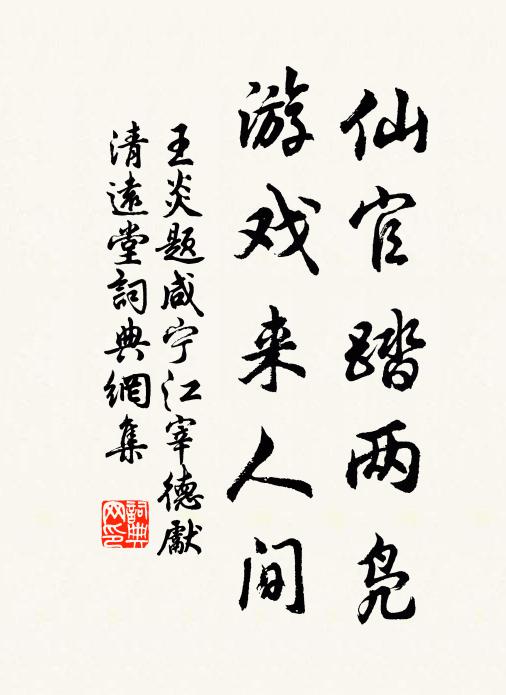 仙官踏两凫
游戏来人间
王炎题咸宁江宰德献
清远堂词典网集
词典网印